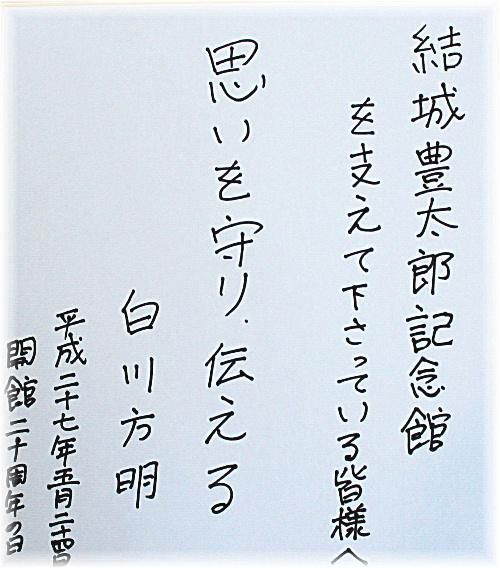 結城豊太郎記念館
を支えて下さっている皆様へ
思いを守り、伝える
白川方明
平成二十七年五月二十四日
開館二十周年の日